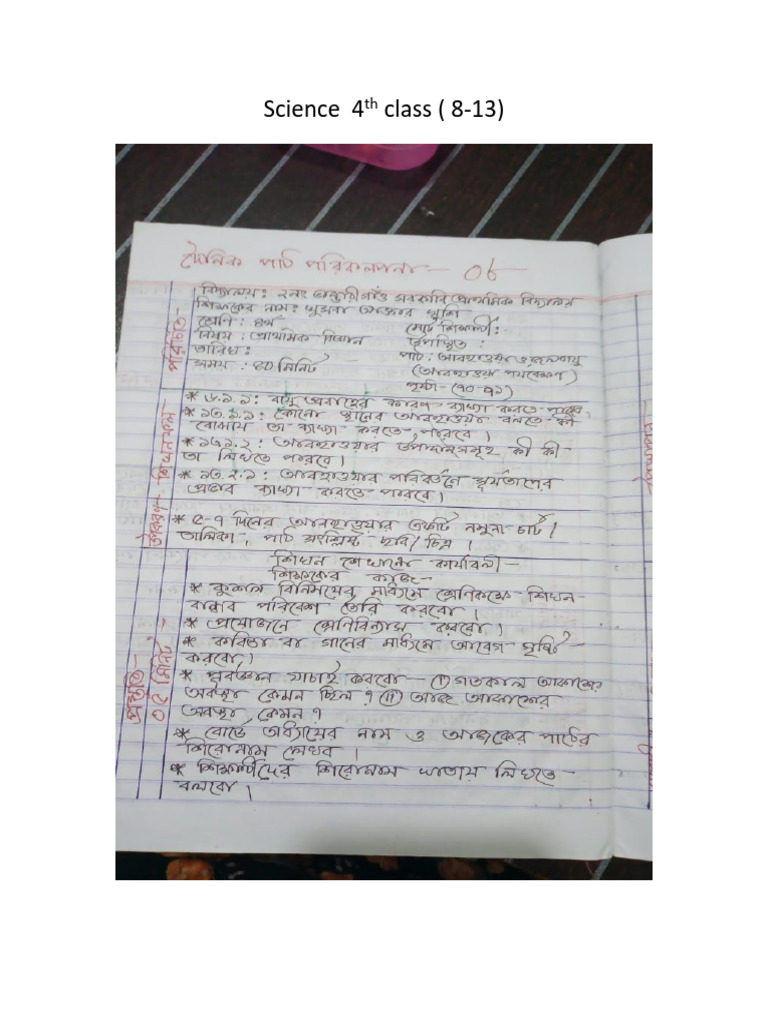 Science 4th class ( 8-13)
দৈনিক পাঠ পরিকল্পনা - ০৮
পরিচিতি-
বিদ্যালয়: ২নং সরকারি প্রাথমিক বিদ্যালয়
শিক্ষকের নাম: আক্তার খুশি
শ্রেণি: ৪র্থ
মোট শিক্ষার্থী:
বিষয়: প্রাথমিক বিজ্ঞান
উপস্থিত:
তারিখ:
পাঠ: আবহাওয়া ও জলবায়ু
সময়: ৪০ মিনিট
(আবহাওয়া পর্যবেক্ষণ)
পৃষ্ঠা- (৭০-৭১)
শিখনফল-
* ৬.১.১: বায়ু প্রবাহের কারণ ব্যাখ্যা করতে পারবে।
* ১৩.১.১: কোনো স্থানের আবহাওয়া বলতে কী
বোঝায় তা ব্যাখ্যা করতে পারবে।
* ১৩.১.২: আবহাওয়ার উপাদানসমূহ কী কী-
তা লিখতে পারবে।
* ১৩.২.১: আবহাওয়ার পরিবর্তনে সূর্যতাপের
প্রভাব ব্যাখ্যা করতে পারবে।
উপকরণ-
* ৫-৭ দিনের আবহাওয়ার একটি নমুনা চার্ট/
তালিকা, পাঠ সংশ্লিষ্ট ছবি/ চিত্র।
শিখন শেখানো কার্যাবলী-
শিক্ষকের কাজ-
প্রস্তুতি-
০৫ মিনিট-
* কুশল বিনিময়ের মাধ্যমে শ্রেণিকক্ষে শিখন-
বান্ধব পরিবেশ তৈরি করবো।
* প্রয়োজনে শ্রেণিবিন্যাস করবো।
* কবিতা বা গানের মাধ্যমে আবেগ সৃষ্টি
করবো।
* পূর্বজ্ঞান যাচাই করবো- (i) গতকাল আকাশের
অবস্থা কেমন ছিল? (ii) আজ আকাশের
অবস্থা কেমন?
* বোর্ডে অধ্যায়ের নাম ও আজকের পাঠের
শিরোনাম লেখব।
* শিক্ষার্থীদের শিরোনাম খাতায় লিখতে-
বলবো।